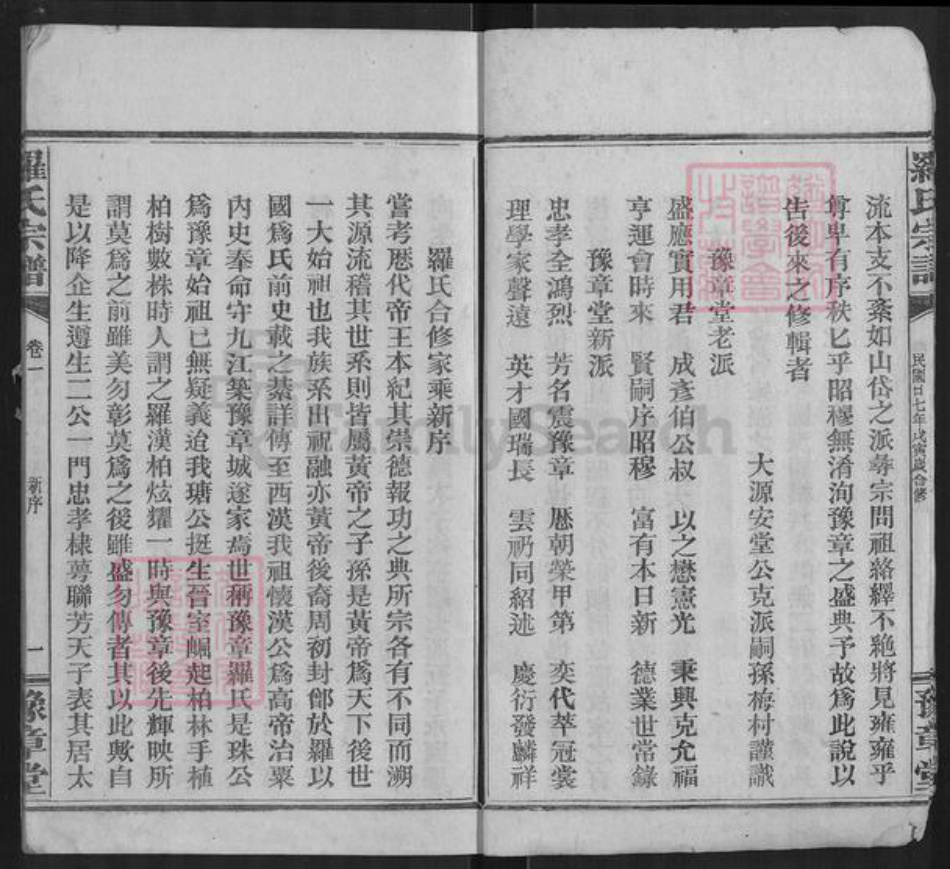 羅氏宗譜
民國廿七年戊寅歲合修
豫章堂
流本支不紊如山岱之派彝宗問祖絡繹不絶將見雍雍乎
尊卑有序秩匕乎昭穆無淆洵豫章之盛典予故爲此說以
告後來之修輯者
大源安堂公克派嗣孫梅村謹識
豫章堂老派
盛應實用君 成彥伯公叔 以之懋憲光 秉興克允福
亨運會時來 賢嗣序昭穆 富有本日新 德業世常錄
豫章堂新派
忠孝全鴻烈 芳名震豫章 厯朝榮甲第 奕代萃冠裳
理學家聲遠 英才國瑞長 雲礽同紹述 慶衍發麟祥
羅氏合修家乘新序
嘗考厯代帝王本紀其崇德報功之典所宗各有不同而溯
其源流稽其世系則皆屬黃帝之子孫是黃帝爲天下後世
一大始祖也我族系出祝融亦黃帝後裔周初封鄶於羅以
國爲氏前史載之綦詳傳至西漢我祖懷漢公爲高帝治粟
內史奉命守九江築豫章城遂家焉世稱豫章羅氏是珠公
爲豫章始祖已無疑義迨我瑭公挺生晉室崛起柏林手植
柏樹數株時人謂之羅漢柏炫耀一時與豫章後先輝映所
謂莫爲之前雖美勿彰莫爲之後雖盛勿傳者其以此歟自
是以降企生遵生二公一門忠孝棣萼聯芳天子表其居太
羅氏宗譜
卷一
新序
一
豫章堂
FamilySearch